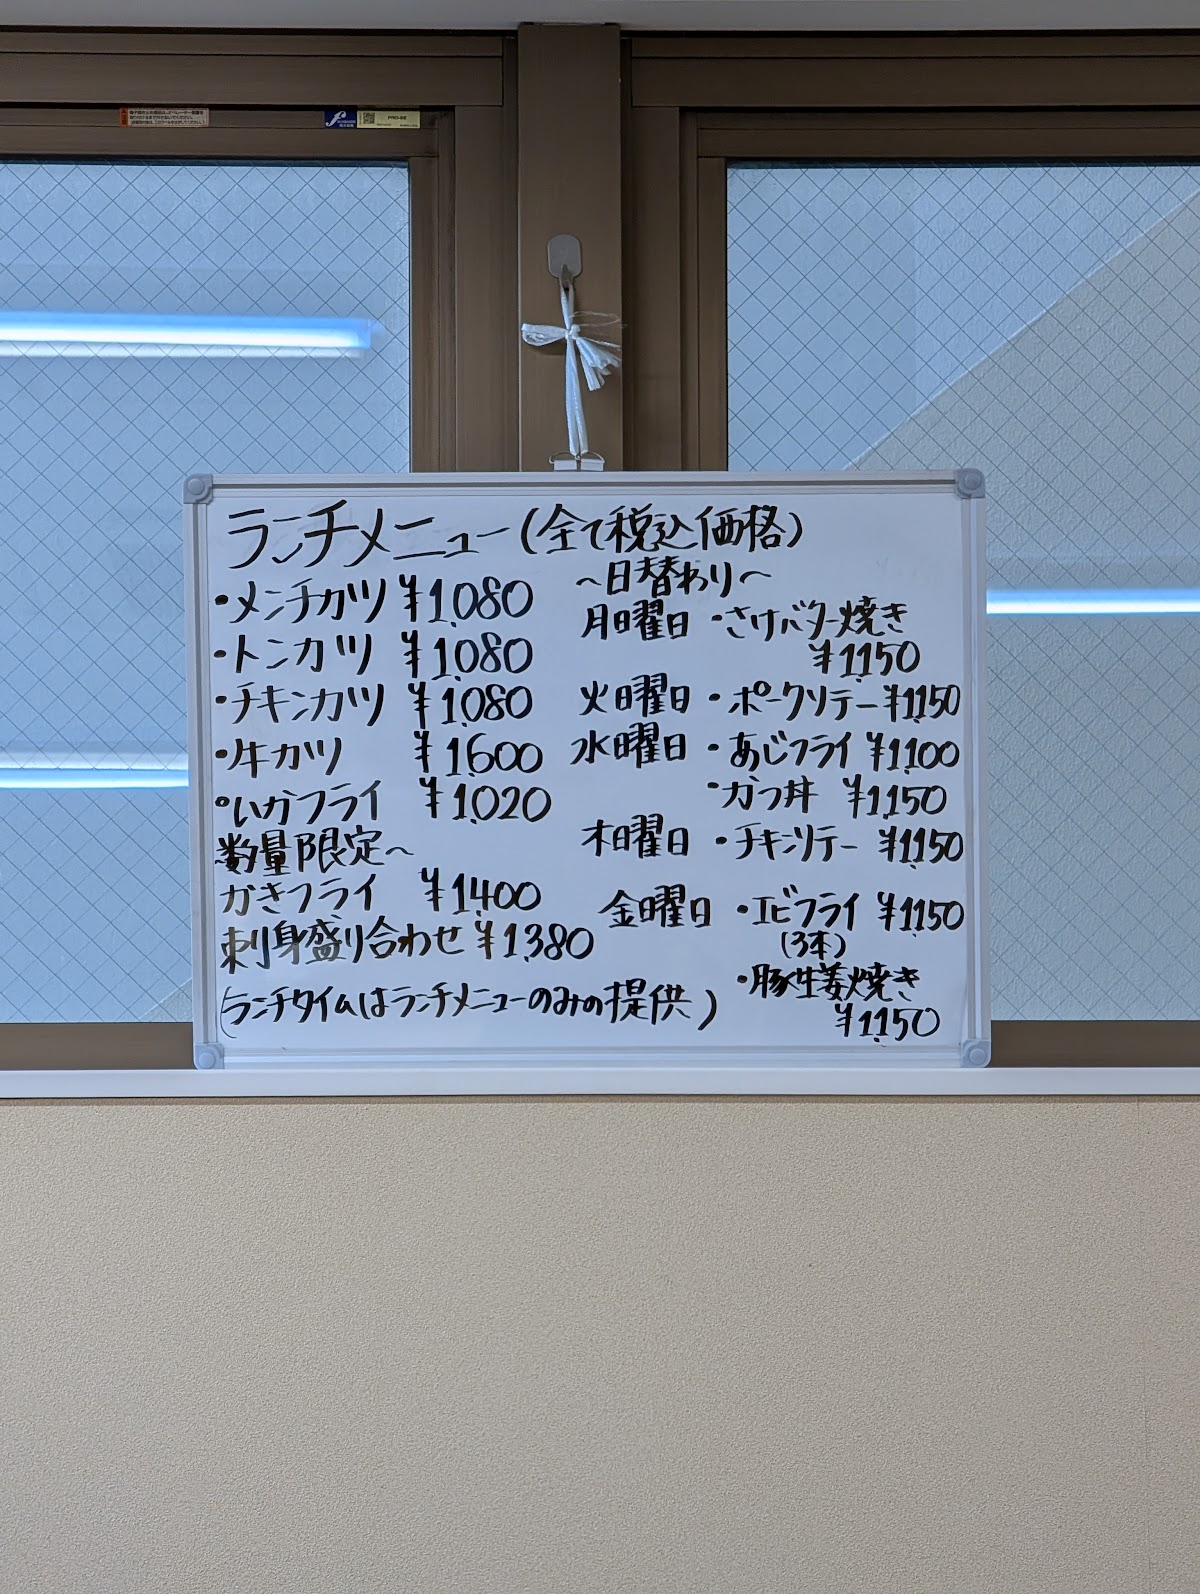 ランチメニュー(全て税込価格)
・メンチカツ ¥1,080
・トンカツ ¥1,080
・チキンカツ ¥1,080
・牛カツ ¥1,600
・いかフライ ¥1,020
数量限定~
かきフライ ¥1,400
刺身盛り合わせ ¥1,380
(ランチタイムはランチメニューのみの提供)
~日替わり~
月曜日 ・さけバター焼き
¥1,150
火曜日 ・ポークソテー ¥1,150
水曜日 ・あじフライ ¥1,100
・かつ丼 ¥1,150
木曜日 ・チキンソテー ¥1,150
金曜日 ・エビフライ ¥1,150
(3本)
・豚生姜焼き
¥1,150